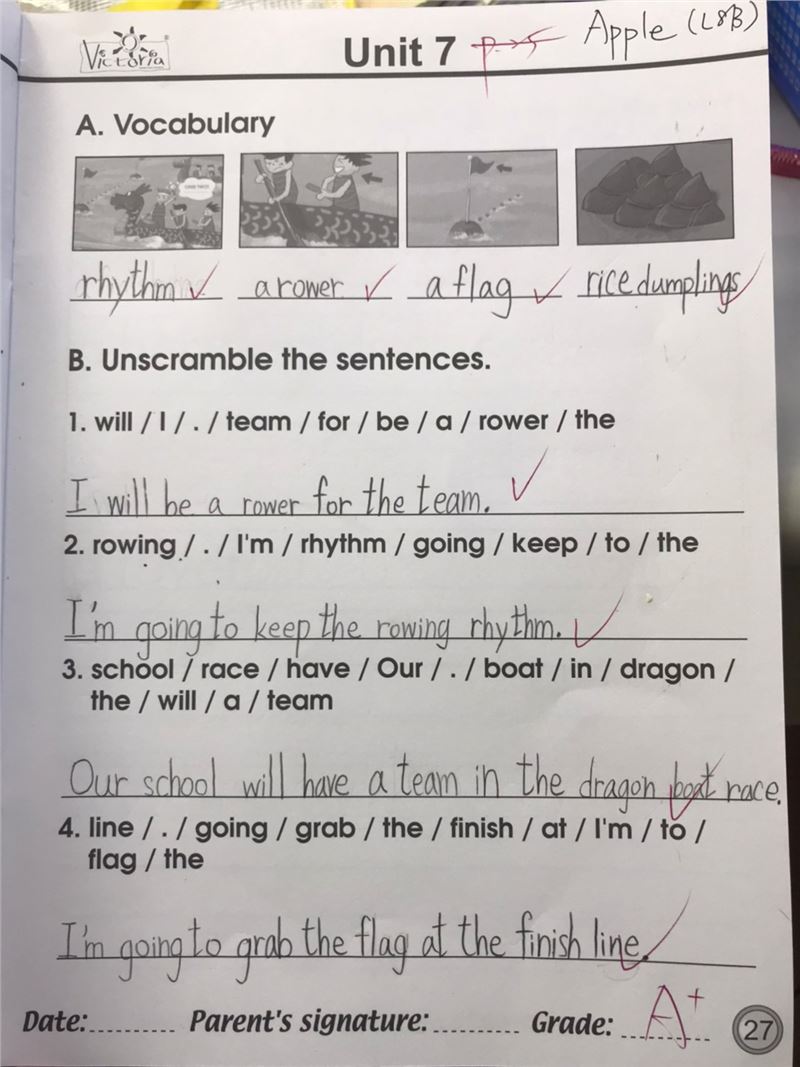 Victoria
Unit 7 Apple (L8B)
A. Vocabulary
rhythm a rower a flag rice dumplings
B. Unscramble the sentences.
1. will / I / . / team / for / be / a / rower / the
I will be a rower for the team.
2. rowing / . / I'm / rhythm / going / keep / to / the
I'm going to keep the rowing rhythm.
3. school / race / have / Our / . / boat / in / dragon /
the / will / a / team
Our school will have a team in the dragon boat race.
4. line / . / going / grab / the / finish / at / I'm / to /
flag / the
I'm going to grab the flag at the finish line.
Date:.......... Parent's signature:.......... Grade: A+
27